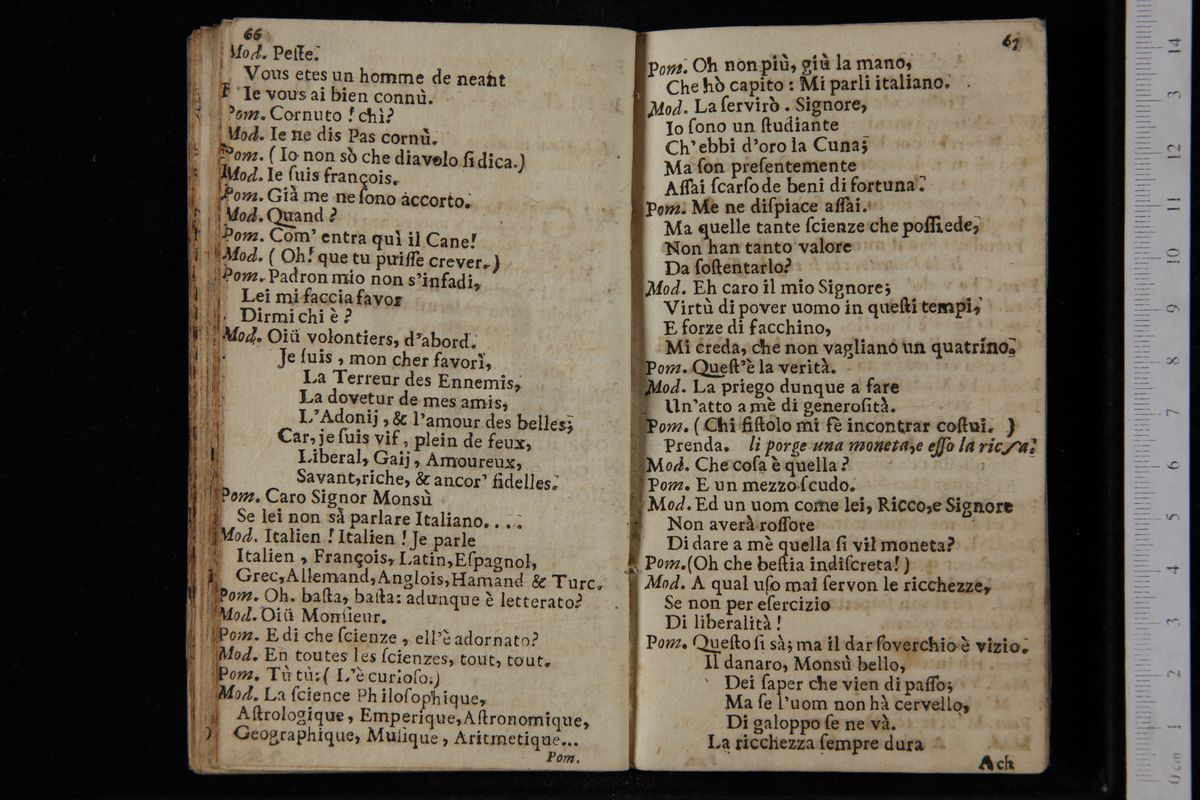 66
Mod. Peſte.
Vous etes un homme de neant
Ie vous ai bien connù.
Pom. Cornuto ! chì?
Mod. Ie ne dis Pas cornù.
Pom. ( Io non sò che diavolo ſi dica.)
Mod. Ie ſuis françois.
Pom. Già me ne ſono accorto.
Mod. Quand ?
Pom. Com' entra quì il Cane!
Mod. ( Oh! que tu puiſſe crever.)
Pom. Padron mio non s'infadi,
Lei mi faccia favor
Dirmi chi è ?
Mod. Oiü volontiers, d'abord.
Je ſuis , mon cher favorì,
La Terreur des Ennemis,
La dovetur de mes amis,
L'Adonij , & l'amour des belles;
Car, je ſuis vif , plein de feux,
Liberal, Gaij , Amoureux,
Savant,riche, & ancor' fidelles.
Pom. Caro Signor Monsù
Se lei non sà parlare Italiano....
Mod. Italien ! Italien ! Je parle
Italien , François, Latin,Eſpagnol,
Grec,Allemand,Anglois,Hamand & Turc.
Pom. Oh. baſta, baſta: adunque è letterato?
Mod. Oiü Monſieur.
Pom. E di che ſcienze , ell'è adornato?
Mod. En toutes les ſcienzes, tout, tout.
Pom. Tù tù:( L'è curioſo.)
Mod. La ſcience Philoſophique,
Aſtrologique, Emperique,Aſtronomique,
Geographique, Muſique , Aritmetique...
Pom.
67
Pom. Oh non più, giù la mano,
Che hò capito : Mi parli italiano.
Mod. La ſervirò . Signore,
Io ſono un ſtudiante
Ch' ebbi d'oro la Cuna;
Ma ſon preſentemente
Aſſai ſcarſo de beni di fortuna.
Pom. Me ne diſpiace aſſai.
Ma quelle tante ſcienze che poſſiede,
Non han tanto valore
Da ſoſtentarlo?
Mod. Eh caro il mio Signore;
Virtù di pover uomo in queſti tempi,
E forze di facchino,
Mi creda, che non vagliano un quatrino.
Pom. Queſt'è la verità.
Mod. La priego dunque a fare
Un'atto a mè di generoſità.
Pom. ( Chi fiſtolo mi fè incontrar coſtui. )
Prenda. li porge una moneta,e eſſo la ricſa.
Mod. Che coſa è quella ?
Pom. E un mezzo ſcudo.
Mod. Ed un uom come lei, Ricco,e Signore
Non averà roſſore
Di dare a mè quella ſi vil moneta?
Pom.(Oh che beſtia indiſcreta! )
Mod. A qual uſo mai ſervon le ricchezze,
Se non per eſercizio
Di liberalità !
Pom. Queſto ſi sà; ma il dar ſoverchio è vizio.
Il danaro, Monsù bello,
Dei ſaper che vien di paſſo;
Ma ſe l'uom non hà cervello,
Di galoppo ſe ne và.
La ricchezza ſempre dura
Ach